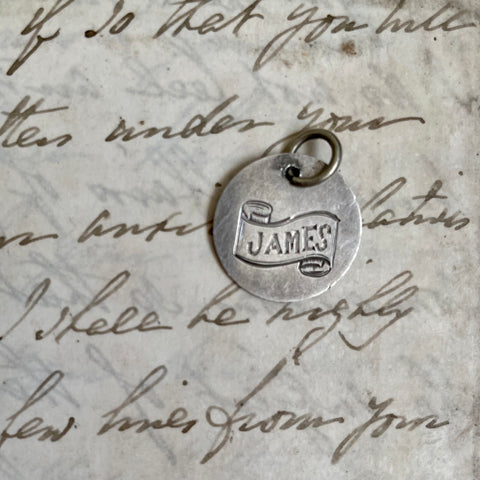 if so that you will
tters under your
JAMES
I shall be highly
few lines from your